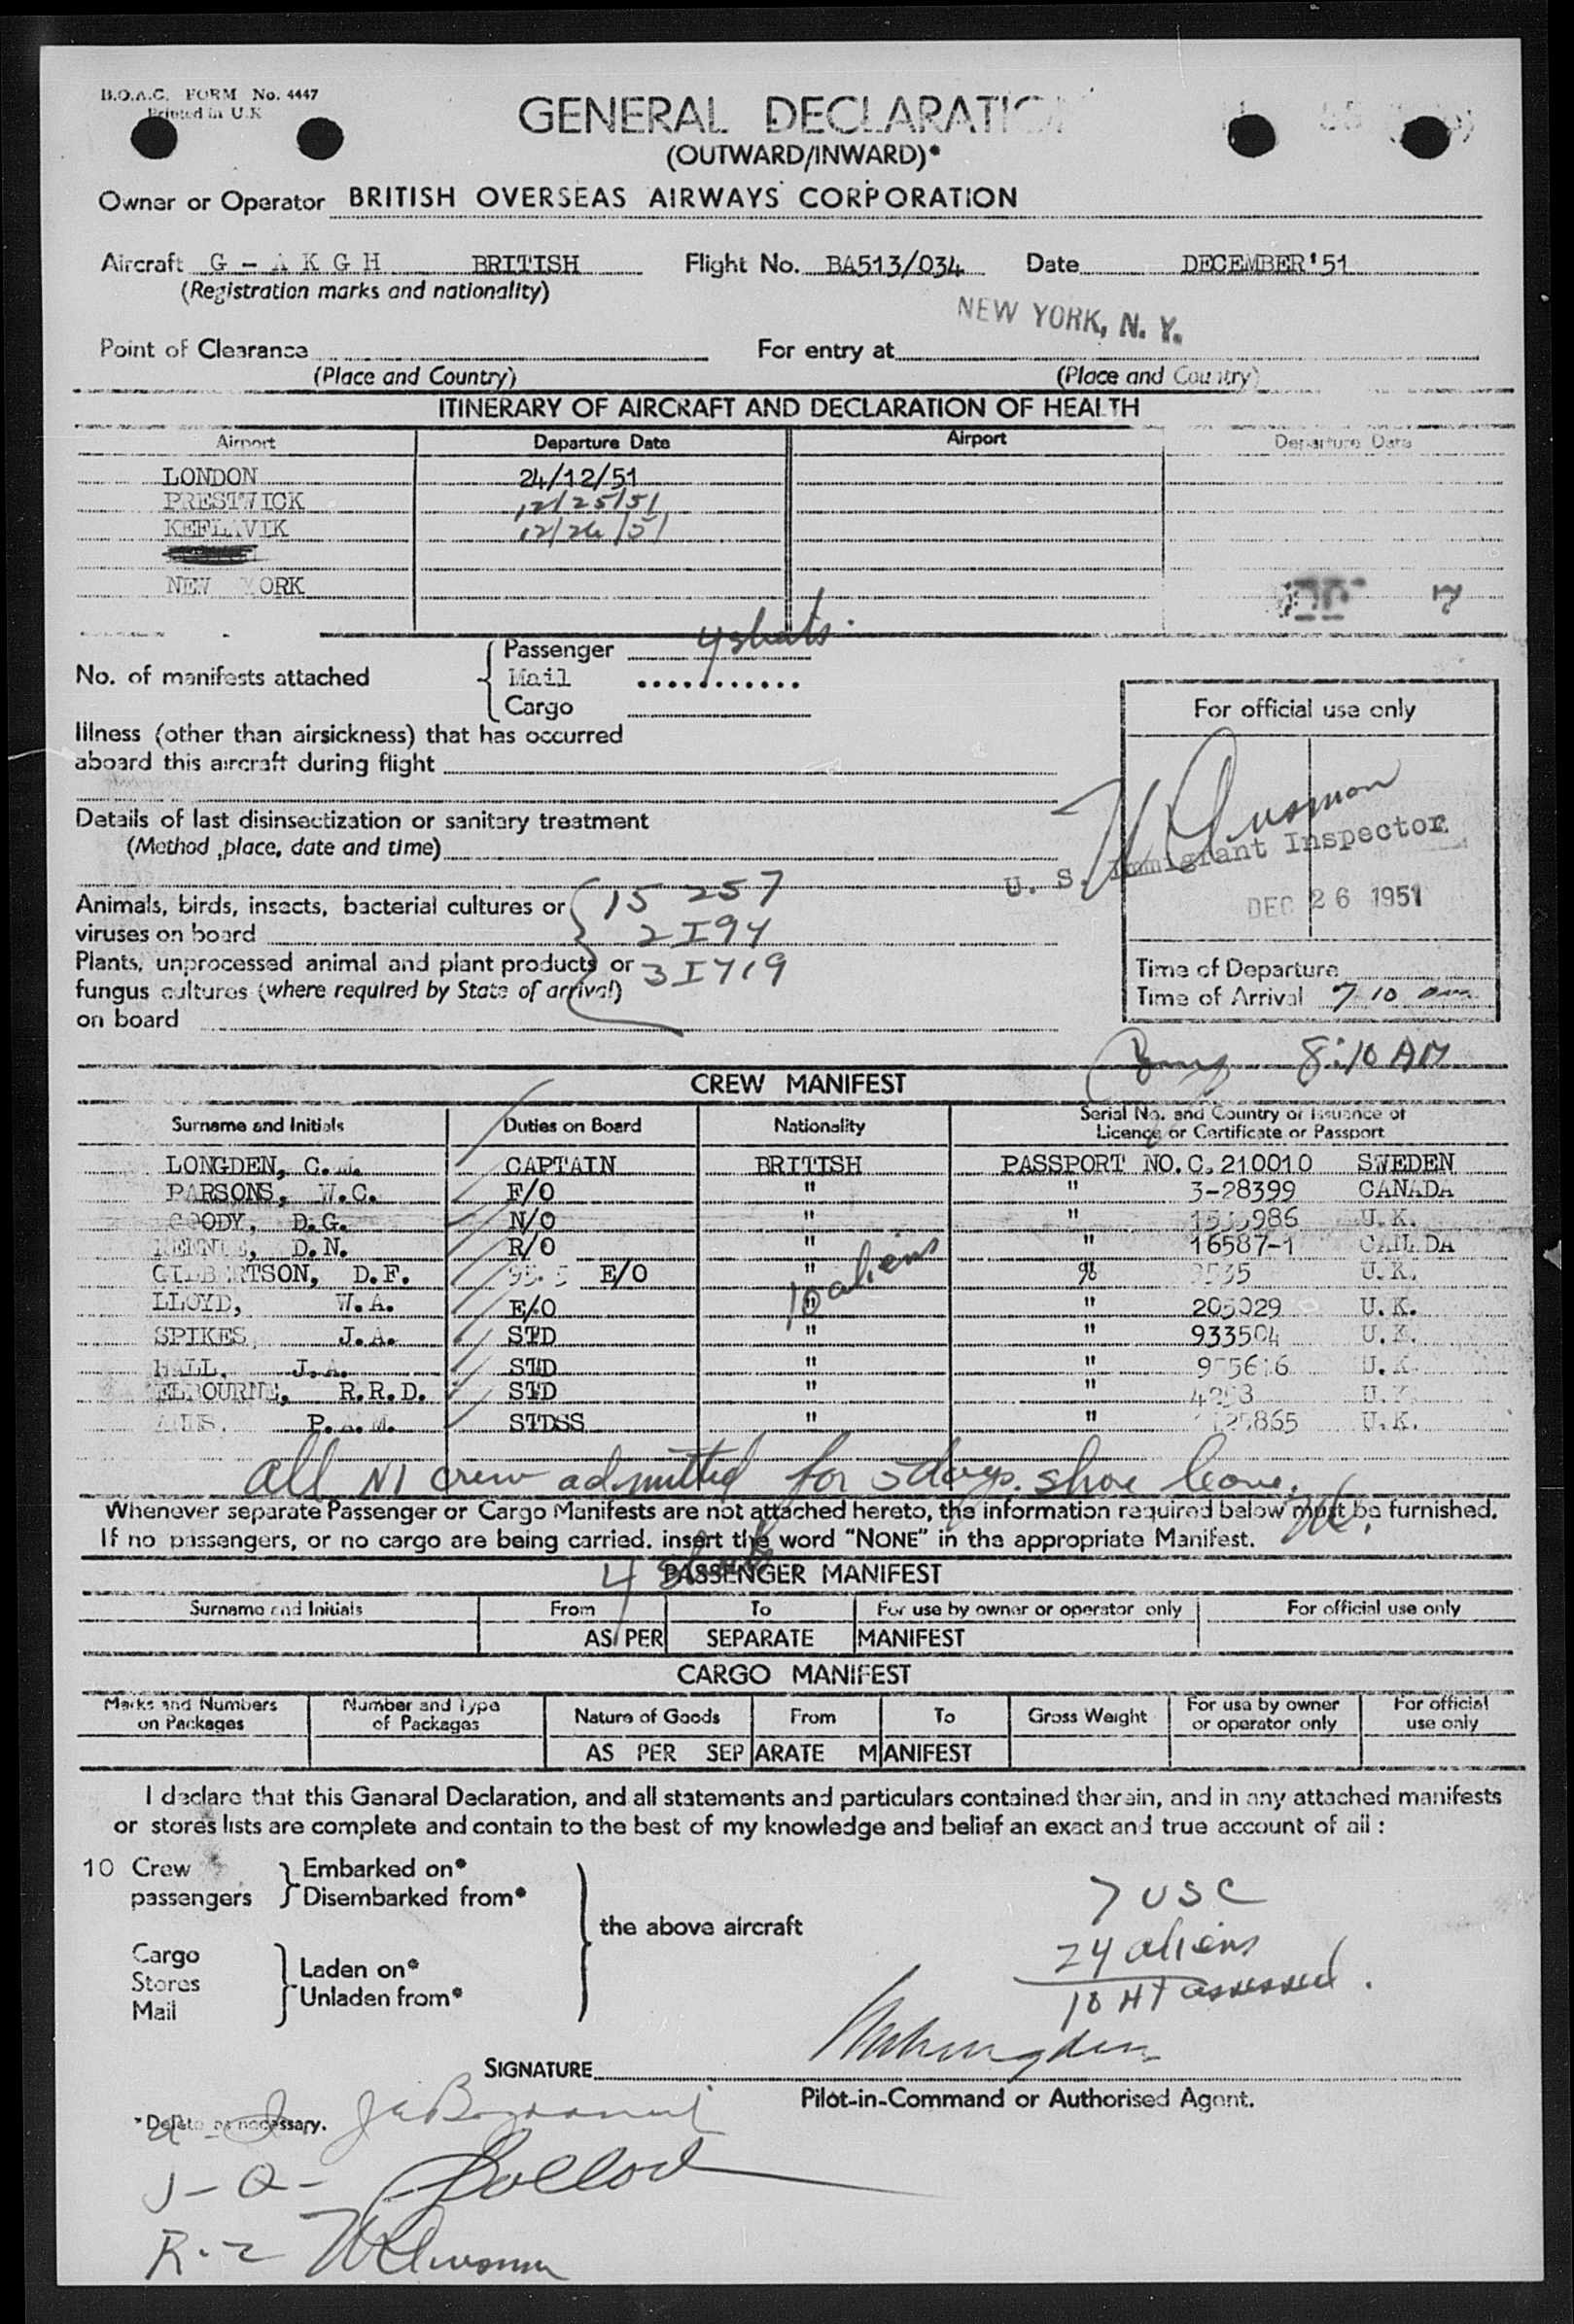 B.O.A.C. FORM No. 4447
Printed in U.K
GENERAL DECLARATION
(OUTWARD/INWARD)*
Owner or Operator BRITISH OVERSEAS AIRWAYS CORPORATION
Aircraft G - A K G H BRITISH Flight No. BA513/034 Date DECEMBER'51
(Registration marks and nationality)
NEW YORK, N. Y.
Point of Clearance For entry at
(Place and Country) (Place and Country)
ITINERARY OF AIRCRAFT AND DECLARATION OF HEALTH
Airport Departure Date Airport Departure Date
LONDON 24/12/51
PRESTWICK 12/25/51
KEFLAVIK 12/26/51
NEW YORK
No. of manifests attached
Passenger 4 shats
Mail
Cargo
For official use only
Illness (other than airsickness) that has occurred
aboard this aircraft during flight
Details of last disinsectization or sanitary treatment
(Method, place, date and time)
U. S. Immigrant Inspector
DEC 26 1951
Animals, birds, insects, bacterial cultures or 15 257
viruses on board 2 I 94
Plants, unprocessed animal and plant products or 3 I 419
fungus cultures (where required by State of arrival)
on board
Time of Departure
Time of Arrival 7 10 am
8:10 AM
CREW MANIFEST
Surname and Initials Duties on Board Nationality Serial No. and Country of Issuance of Licence or Certificate or Passport
LONGDEN, C. CAPTAIN BRITISH PASSPORT NO. C. 210010 SWEDEN
PARSONS, W.C. F/O " " 3-28399 CANADA
GOODY, D.G. N/O " " 986 U.K.
D.N. R/O " " 16587-1 CANADA
GILBERTSON, D.F. E/O " 535 U.K.
LLOYD, W.A. E/O " " 205029 U.K.
SPIKES J.A. STD " " 933504 U.K.
HALL, J.A. STD " " U.K.
ELBOURNE, R.R.D. STD " " U.K.
P.A.M. STDSS " " U.K.
10 aliens
all NI crew admitted for 5 days shore leave.
Whenever separate Passenger or Cargo Manifests are not attached hereto, the information required below must be furnished.
If no passengers, or no cargo are being carried. insert the word "NONE" in the appropriate Manifest.
4
PASSENGER MANIFEST
Surname and Initials From To For use by owner or operator only For official use only
AS PER SEPARATE MANIFEST
CARGO MANIFEST
Marks and Numbers on Packages Number and Type of Packages Nature of Goods From To Gross Weight For use by owner or operator only For official use only
AS PER SEPARATE MANIFEST
I declare that this General Declaration, and all statements and particulars contained therein, and in any attached manifests
or stores lists are complete and contain to the best of my knowledge and belief an exact and true account of all :
10 Crew Embarked on*
passengers Disembarked from*
the above aircraft
Cargo
Stores Laden on*
Mail Unladen from*
7 USC
24 aliens
18 HT assessed.
SIGNATURE
Pilot-in-Command or Authorised Agent.
*Delete as necessary.
J - Q -
R - 2